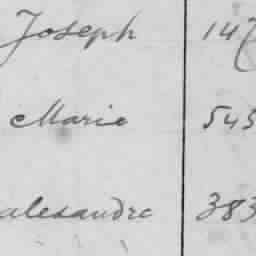 Joseph 147
Marie 543
alesandre 383